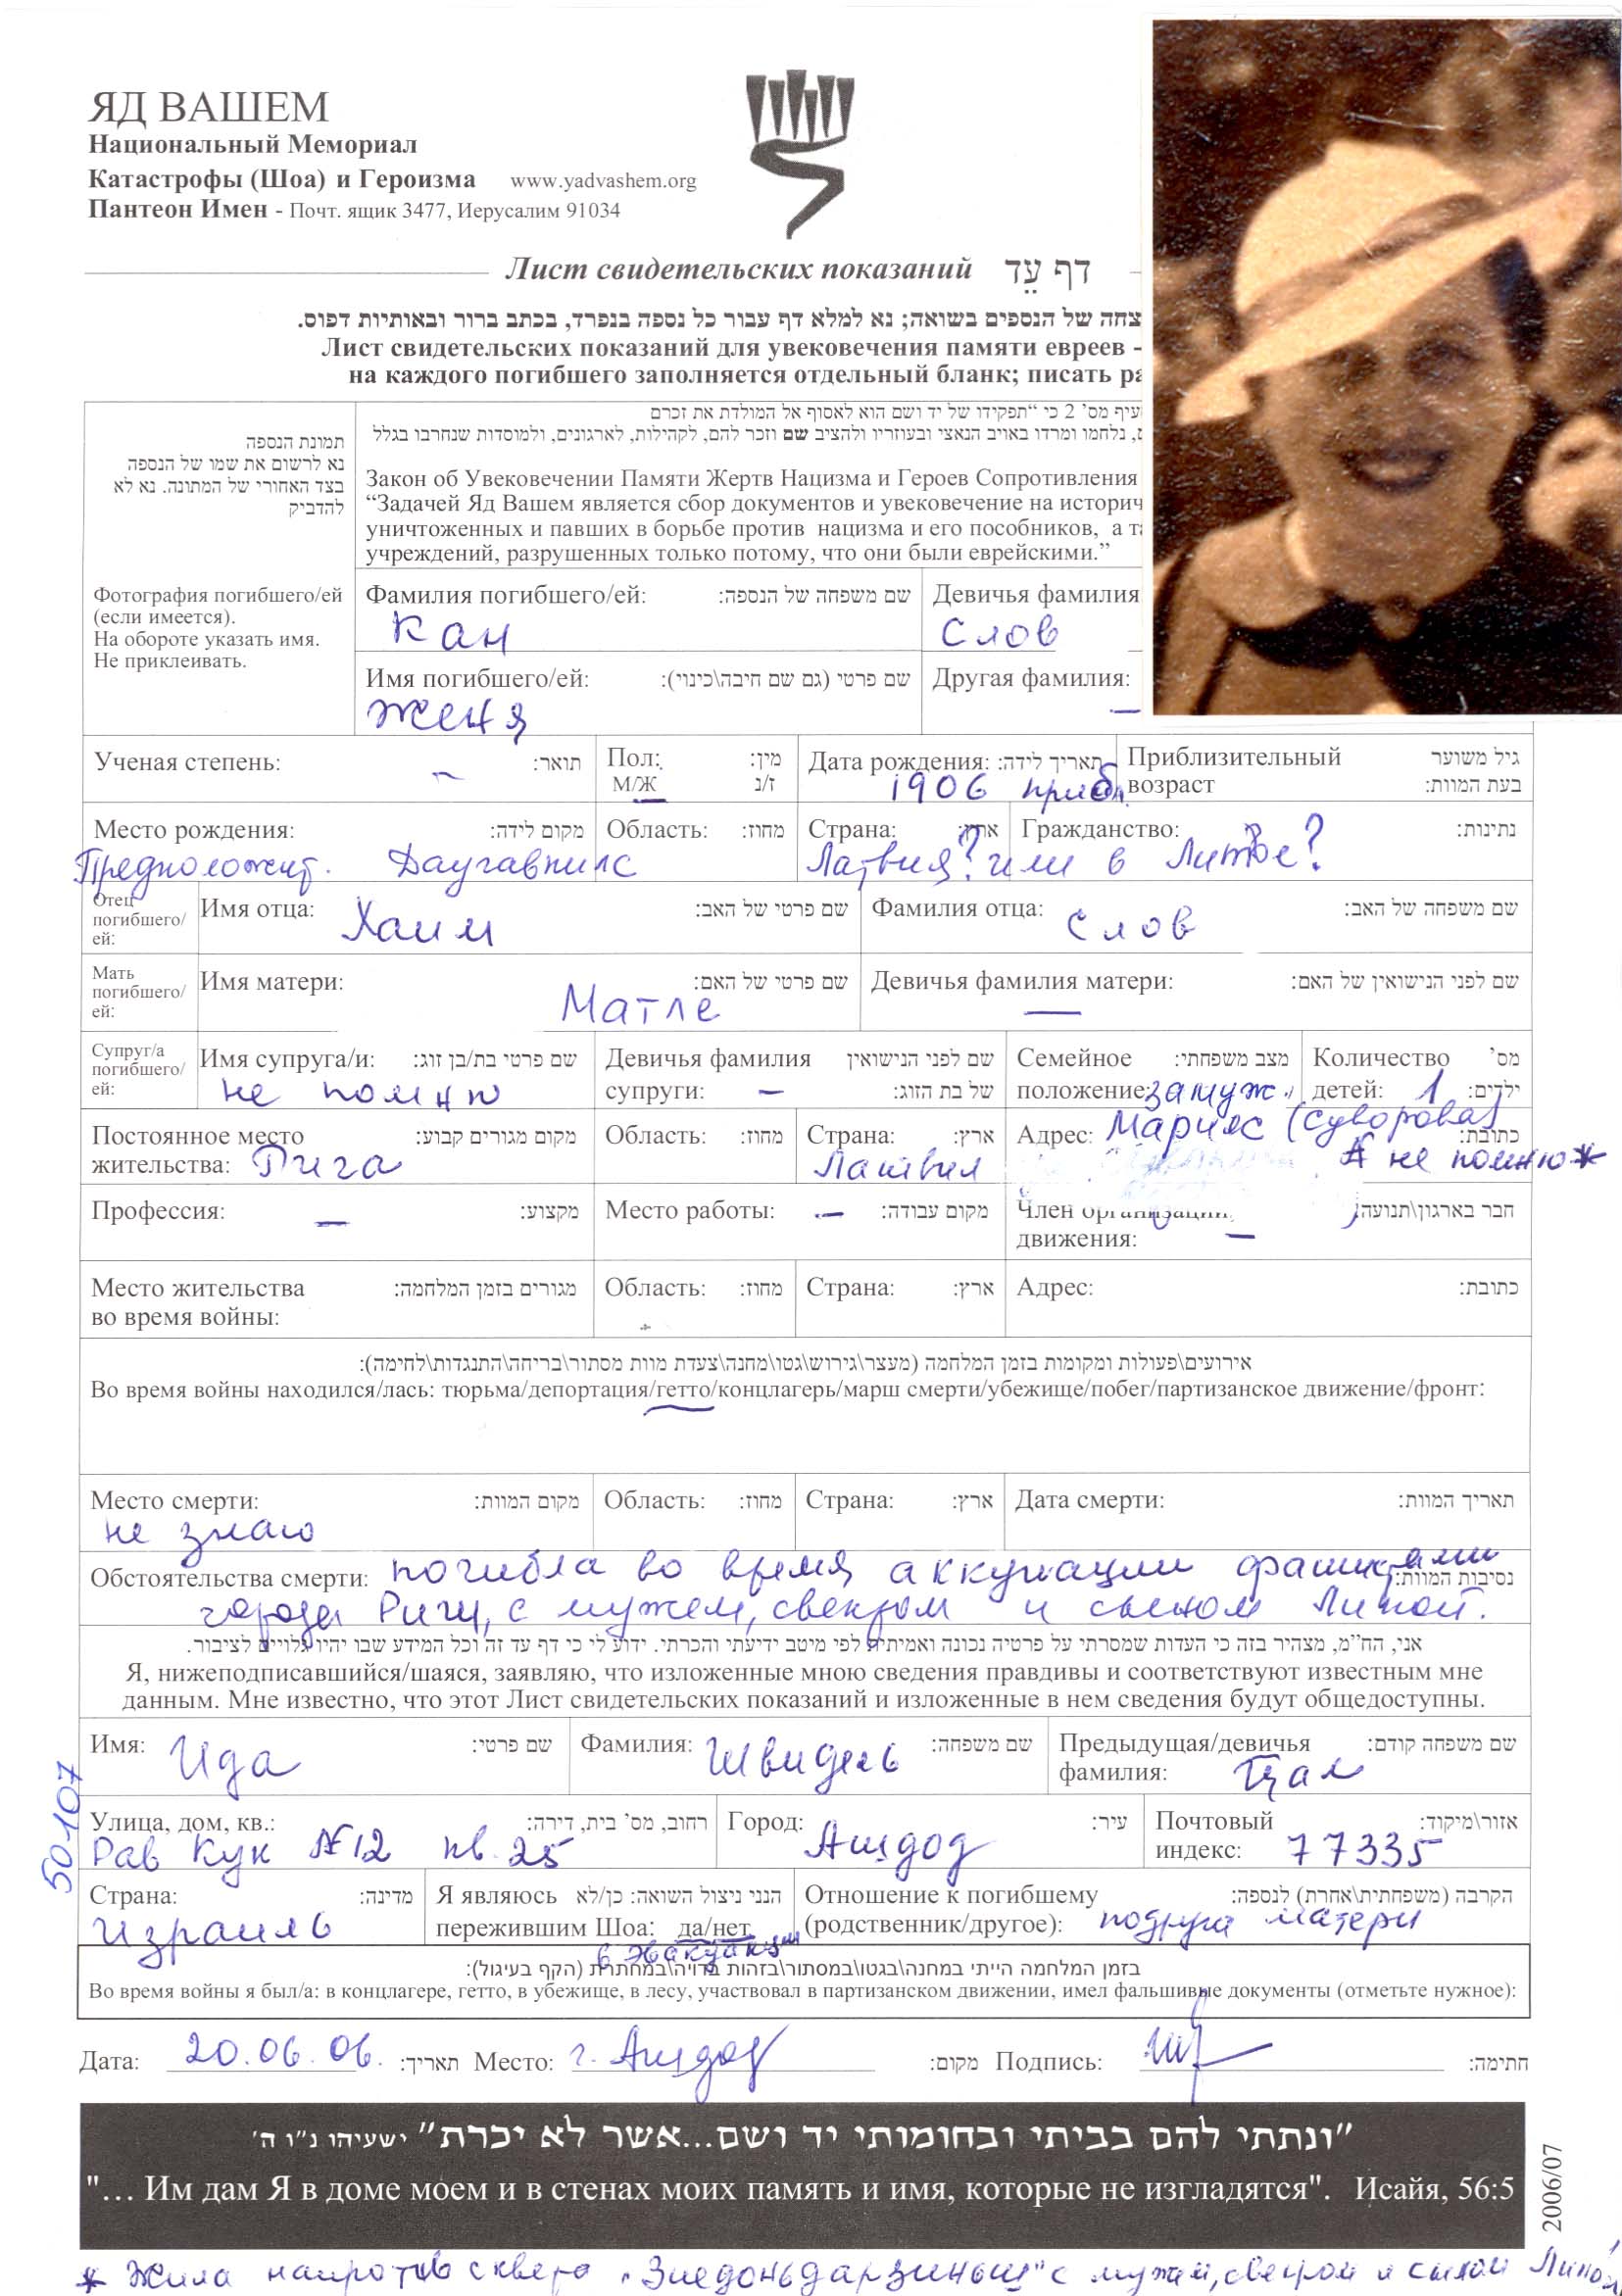 ЯД ВАШЕМ
Национальный Мемориал
Катастрофы (Шоа) и Героизма www.yadvashem.org
Пантеон Имен - Почт. ящик 3477, Иерусалим 91034
Лист свидетельских показаний דף עֵד
צחה של הנספים בשואה; נא למלא דף עבור כל נספה בנפרד, בכתב ברור ובאותיות דפוס.
Лист свидетельских показаний для увековечения памяти евреев -
на каждого погибшего заполняется отдельный бланк; писать ра
תמונת הנספה
נא לרשום את שמו של הנספה
בצד האחורי של התמונה. נא לא
להדביק
Фотография погибшего/ей
(если имеется).
На обороте указать имя.
Не приклеивать.
עיף מס' 2 כי "תפקידו של יד ושם הוא לאסוף אל המולדת את זכרם
ם, נלחמו ומרדו באויב הנאצי ובעוזריו ולהציב שם וזכר להם, לקהילות, לארגונים, ולמוסדות שנחרבו בגלל
Закон об Увековечении Памяти Жертв Нацизма и Героев Сопротивления
“Задачей Яд Вашем является сбор документов и увековечение на историч
уничтоженных и павших в борьбе против нацизма и его пособников, а та
учреждений, разрушенных только потому, что они были еврейскими.”
Фамилия погибшего/ей: שם משפחה של הנספה: Девичья фамилия
Кан Слов
Имя погибшего/ей: שם פרטי (גם שם חיבה\כינוי): Другая фамилия:
Женя —
Ученая степень: תואר: — Пол: מין: М/Ж ז/נ Дата рождения: תאריך לידה: 1906 прибл. Приблизительный возраст גיל משוער בעת המוות:
Место рождения: מקום לידה: Область: מחוז: Страна: ארץ: Гражданство: נתינות:
Предположит. Даугавпилс Латвия? или в Литве?
Отец погибшего/ей: Имя отца: Хаим שם פרטי של האב: Фамилия отца: Слов שם משפחה של האב:
Мать погибшего/ей: Имя матери: שם פרטי של האם: Матле Девичья фамилия матери: — שם לפני הנישואין של האם:
Супруг/а погибшего/ей: Имя супруга/и: שם פרטי בת/בן זוג: не помню Девичья фамилия супруги: — שם לפני הנישואין של בת הזוג: Семейное положение: מצב משפחתי: замуж. Количество детей: 1 מס' ילדים:
Постоянное место жительства: מקום מגורים קבוע: Рига Область: מחוז: Страна: ארץ: Латвия Адрес: כתובת: Марияс (Суворова) № не помню*
Профессия: — מקצוע: Место работы: — מקום עבודה: Член организации, движения: — חבר בארגון\תנועה:
Место жительства во время войны: מגורים בזמן המלחמה: Область: מחוז: Страна: ארץ: Адрес: כתובת:
אירועים\פעולות ומקומות בזמן המלחמה (מעצר\גירוש\גטו\מחנה\צעדת מוות מסתור\בריחה\התנגדות\לחימה):
Во время войны находился/лась: тюрьма/депортация/гетто/концлагерь/марш смерти/убежище/побег/партизанское движение/фронт:
Место смерти: מקום המוות: Область: מחוז: Страна: ארץ: Дата смерти: תאריך המוות:
не знаю
Обстоятельства смерти: погибла во время аккупации фашистами נסיבות המוות:
города Риги, с мужем, свекром и сыном Липой.
אני, הח"מ, מצהיר בזה כי העדות שמסרתי על פרטיה נכונה ואמיתית לפי מיטב ידיעתי והכרתי. ידוע לי כי דף עד זה וכל המידע שבו יהיו גלויים לציבור.
Я, нижеподписавшийся/шаяся, заявляю, что изложенные мною сведения правдивы и соответствуют известным мне
данным. Мне известно, что этот Лист свидетельских показаний и изложенные в нем сведения будут общедоступны.
Имя: Ида שם פרטי: Фамилия: Швидель שם משפחה: Предыдущая/девичья фамилия: שם משפחה קודם:
Улица, дом, кв.: רחוב, מס' בית, דירה: Город: עיר: Почтовый индекс: אזור\מיקוד:
Рав Кук № 12 кв. 25 Ашдод 77335
50107
Страна: מדינה: Израиль Я являюсь пережившим Шоа: да/нет הנני ניצול השואה: כן/לא Отношение к погибшему (родственник/другое): הקרבה (משפחתית\אחרת) לנספה: подруга матери
в эвакуации
בזמן המלחמה הייתי במחנה\בגטו\במסתור\בזהות בדויה\במחתרת (הקף בעיגול):
Во время войны я был/а: в концлагере, гетто, в убежище, в лесу, участвовал в партизанском движении, имел фальшивые документы (отметьте нужное):
Дата: 20.06.06. תאריך: Место: г. Ашдод מקום: Подпись: חתימה:
"ונתתי להם בביתי ובחומותי יד ושם...אשר לא יכרת" ישעיהו נ"ו ה'
"... Им дам Я в доме моем и в стенах моих память и имя, которые не изгладятся". Исайя, 56:5
2006/07
* Жила напротив сквера „Зиедоньдарзиньш" с мужем, свекром и сыном Липой